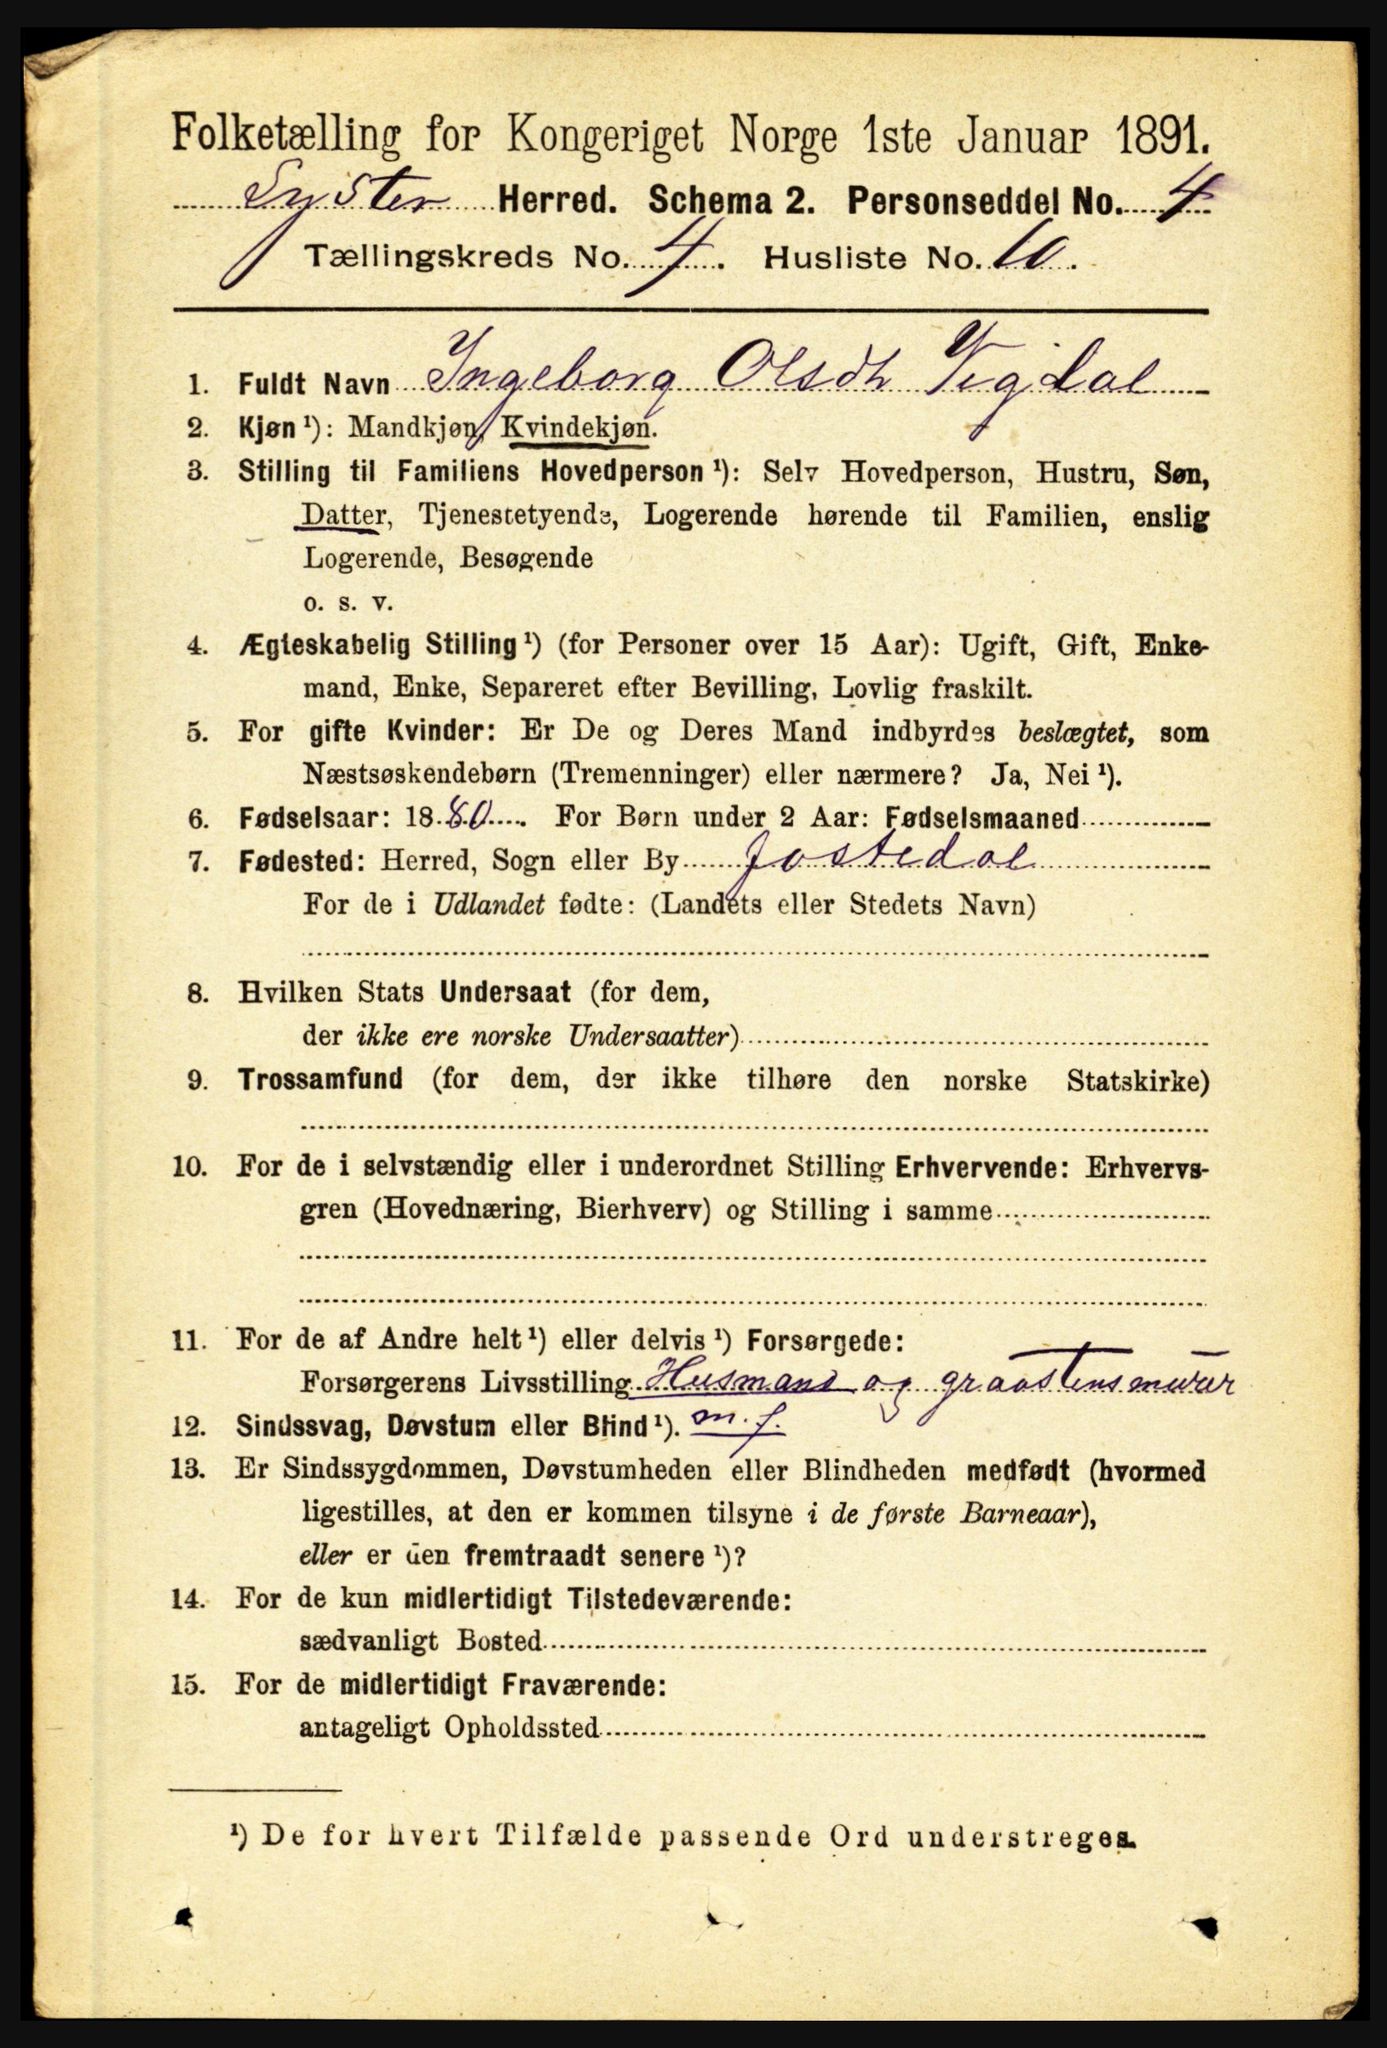 Folketælling for Kongeriget Norge 1ste Januar 1891.
Lyster Herred. Schema 2. Personseddel No. 4
Tællingskreds No. 4. Husliste No. 10.
1. Fuldt Navn Ingeborg Olsdtr Vigdal
2. Kjøn ¹): Mandkjøn, Kvindekjøn.
3. Stilling til Familiens Hovedperson ¹): Selv Hovedperson, Hustru, Søn,
Datter, Tjenestetyende, Logerende hørende til Familien, enslig
Logerende, Besøgende
o. s. v.
4. Ægteskabelig Stilling ¹) (for Personer over 15 Aar): Ugift, Gift, Enke-
mand, Enke, Separeret efter Bevilling, Lovlig fraskilt.
5. For gifte Kvinder: Er De og Deres Mand indbyrdes beslægtet, som
Næstsøskendebørn (Tremenninger) eller nærmere? Ja, Nei ¹).
6. Fødselsaar: 1880. For Børn under 2 Aar: Fødselsmaaned
7. Fødested: Herred, Sogn eller By Jostedal
For de i Udlandet fødte: (Landets eller Stedets Navn)
8. Hvilken Stats Undersaat (for dem,
der ikke ere norske Undersaatter)
9. Trossamfund (for dem, der ikke tilhøre den norske Statskirke)
10. For de i selvstændig eller i underordnet Stilling Erhvervende: Erhvervs-
gren (Hovednæring, Bierhverv) og Stilling i samme
11. For de af Andre helt ¹) eller delvis ¹) Forsørgede:
Forsørgerens Livsstilling Husmand og graastensmurer
12. Sindssvag, Døvstum eller Blind ¹). m. f.
13. Er Sindssygdommen, Døvstumheden eller Blindheden medfødt (hvormed
ligestilles, at den er kommen tilsyne i de første Barneaar),
eller er den fremtraadt senere ¹)?
14. For de kun midlertidigt Tilstedeværende:
sædvanligt Bosted
15. For de midlertidigt Fraværende:
antageligt Opholdssted
¹) De for hvert Tilfælde passende Ord understreges.